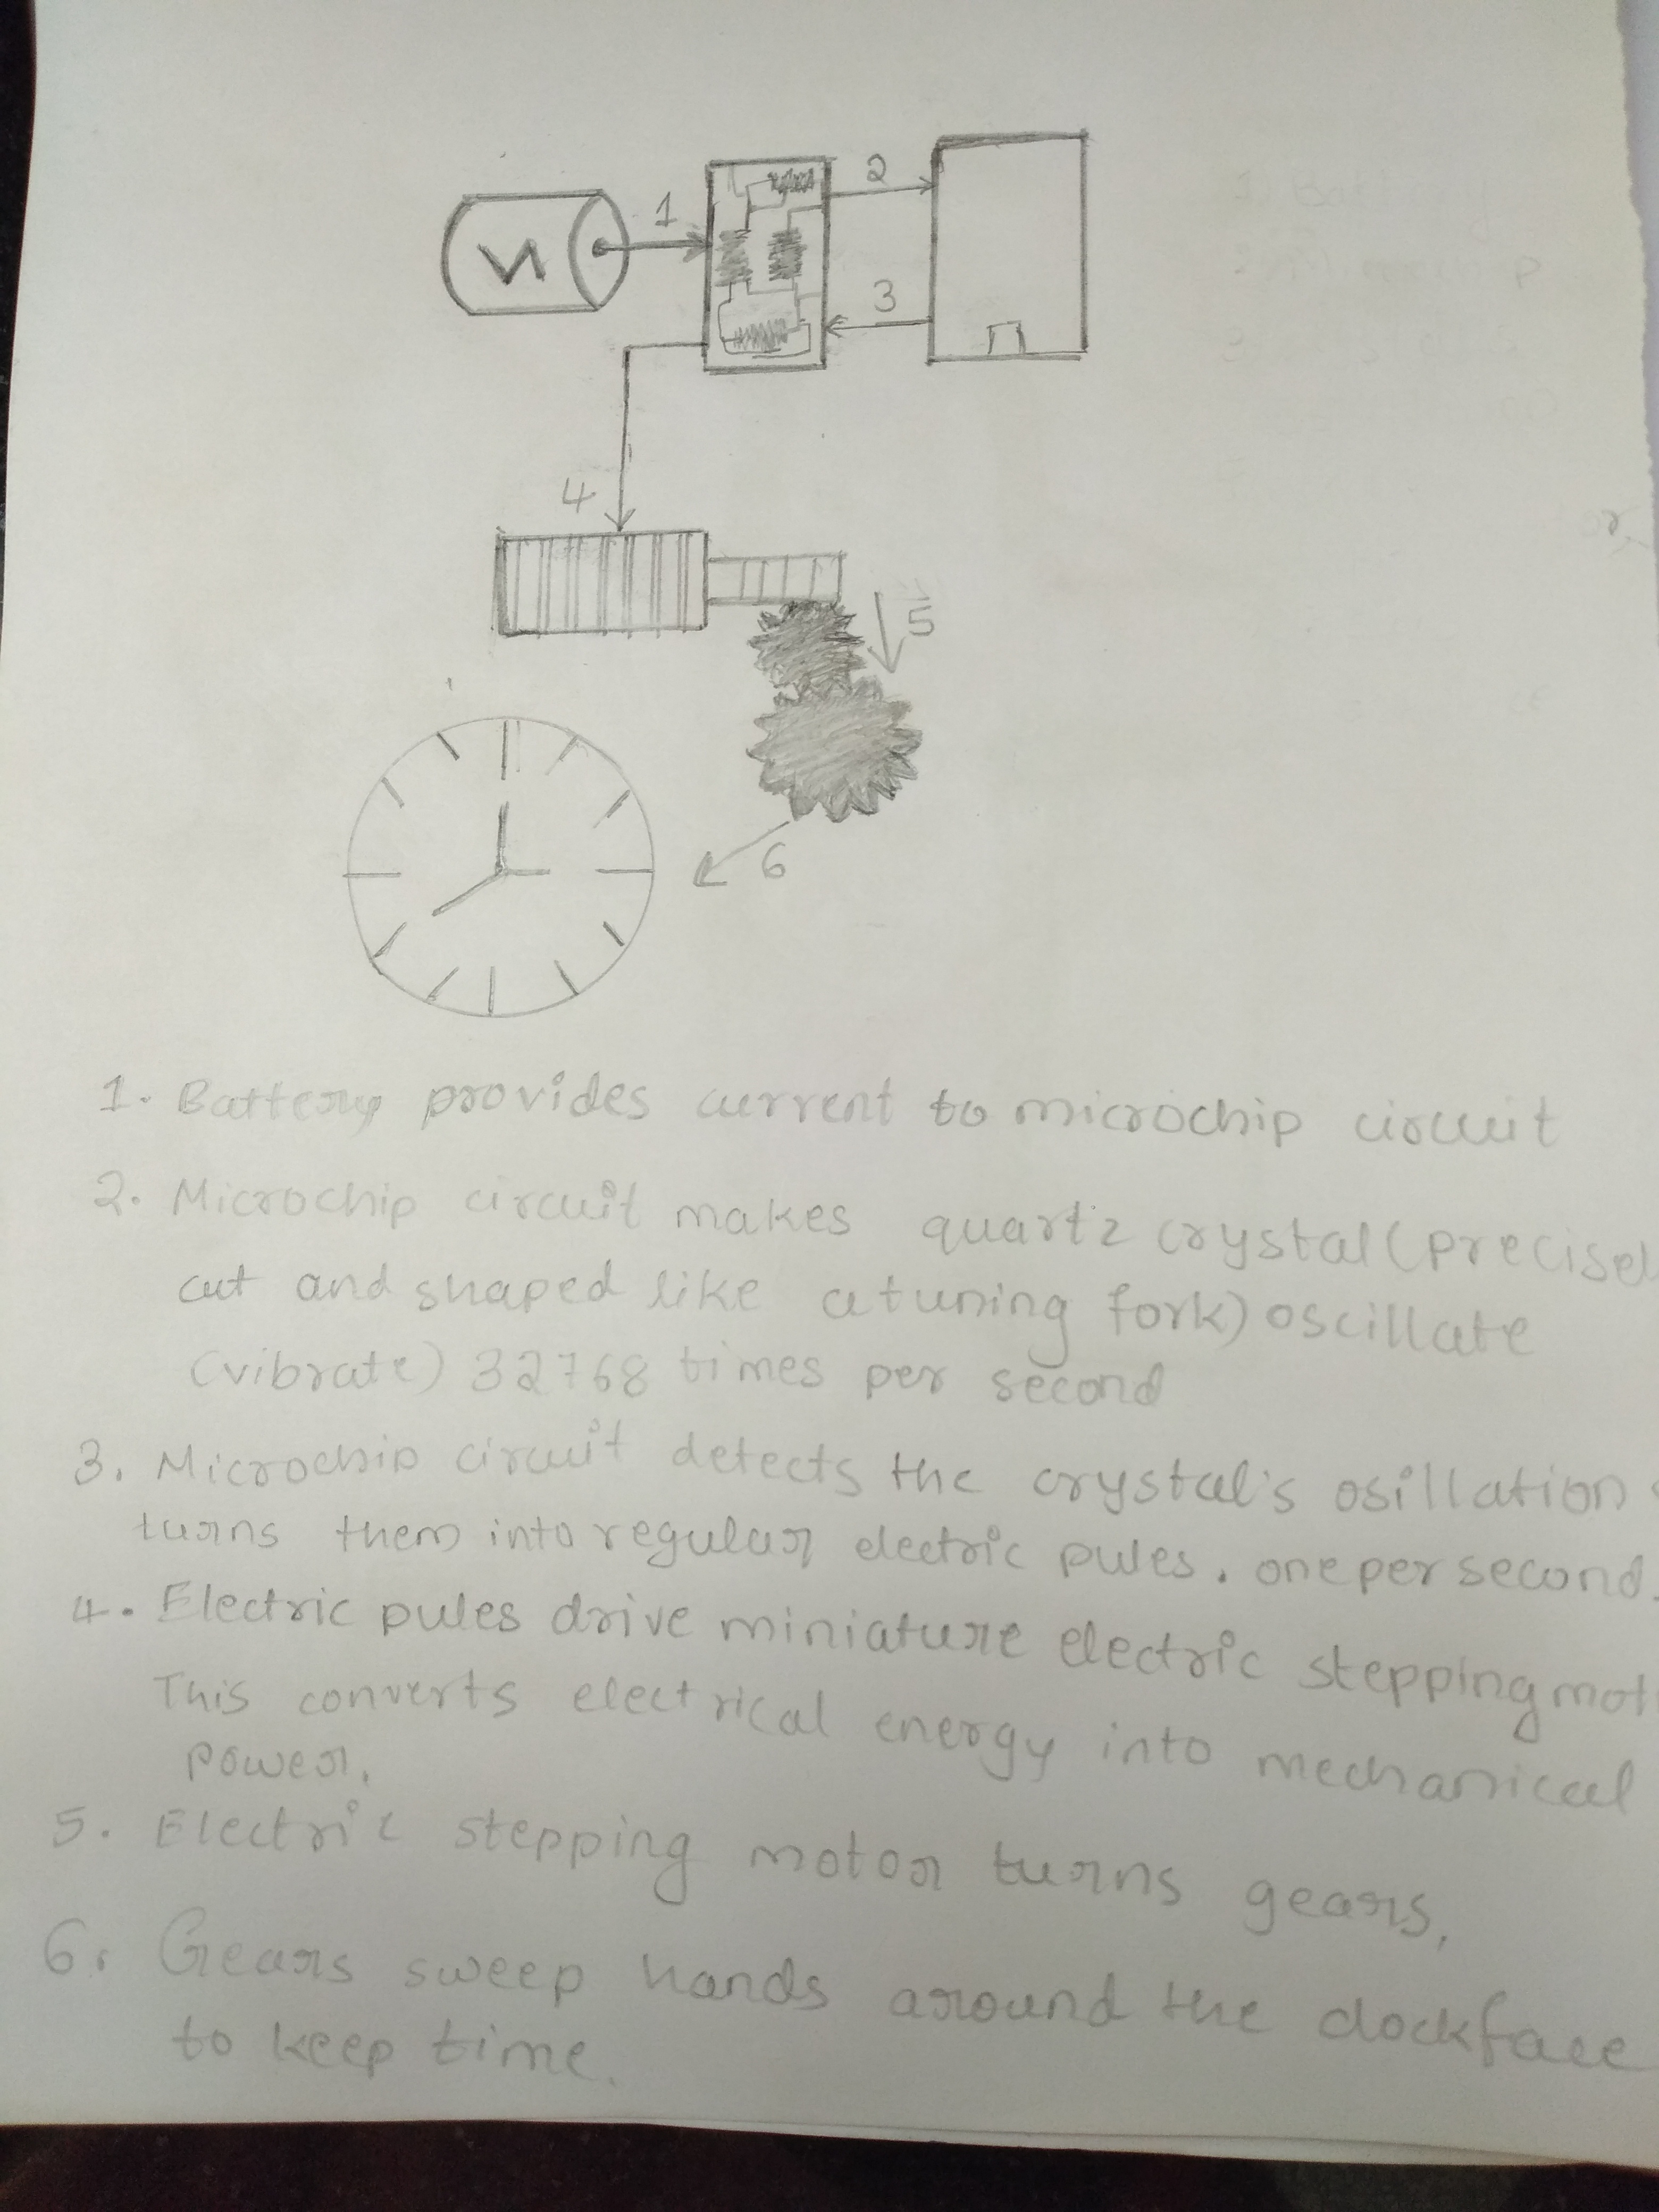 1
2
3
4
5
6
1. Battery provides current to microchip circuit
2. Microchip circuit makes quartz crystal (precisel
cut and shaped like a tuning fork) oscillate
(vibrate) 32768 times per second
3. Microchip circuit detects the crystal's osillation
turns them into regular electric pules. one per second.
4. Electric pules drive miniature electric stepping mot
This converts electrical energy into mechanical
power.
5. Electric stepping motor turns gears,
6. Gears sweep hands around the clockface
to keep time.